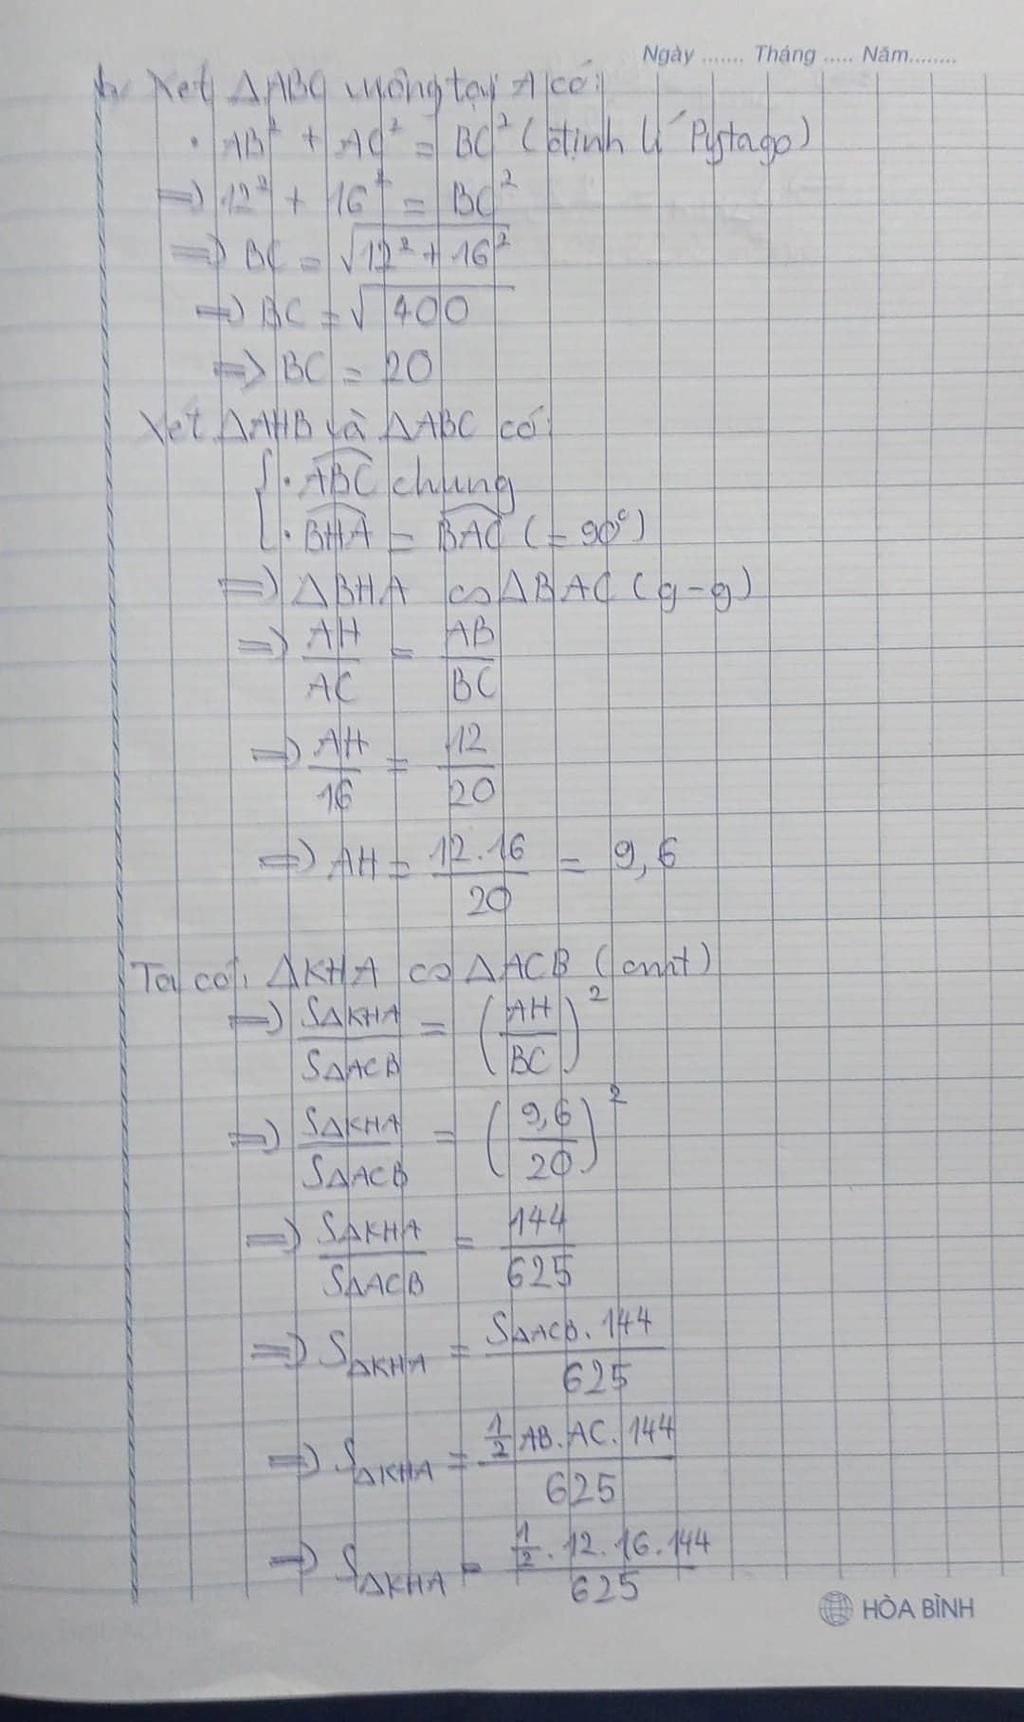 Ngày ....... Tháng ..... Năm........
b, Xét ΔABC vuông tại A có:
• AB² + AC² = BC² (định lí Pytago)
=> 12² + 16² = BC²
=> BC = √(12² + 16²)
=> BC = √400
=> BC = 20
Xét ΔAHB và ΔABC có:
{ • ABC chung
• BHA = BAC (= 90°)
=> ΔBHA ∽ ΔBAC (g-g)
=> AH/AC = AB/BC
=> AH/16 = 12/20
=> AH = 12.16/20 = 9,6
Ta có: ΔKHA ∽ ΔACB (cmt)
=> SΔKHA/SΔACB = (AH/BC)²
=> SΔKHA/SΔACB = (9,6/20)²
=> SΔKHA/SΔACB = 144/625
=> SΔKHA = SΔACB.144/625
=> SΔKHA = 1/2 AB.AC.144/625
=> SΔKHA = 1/2.12.16.144/625
HÒA BÌNH